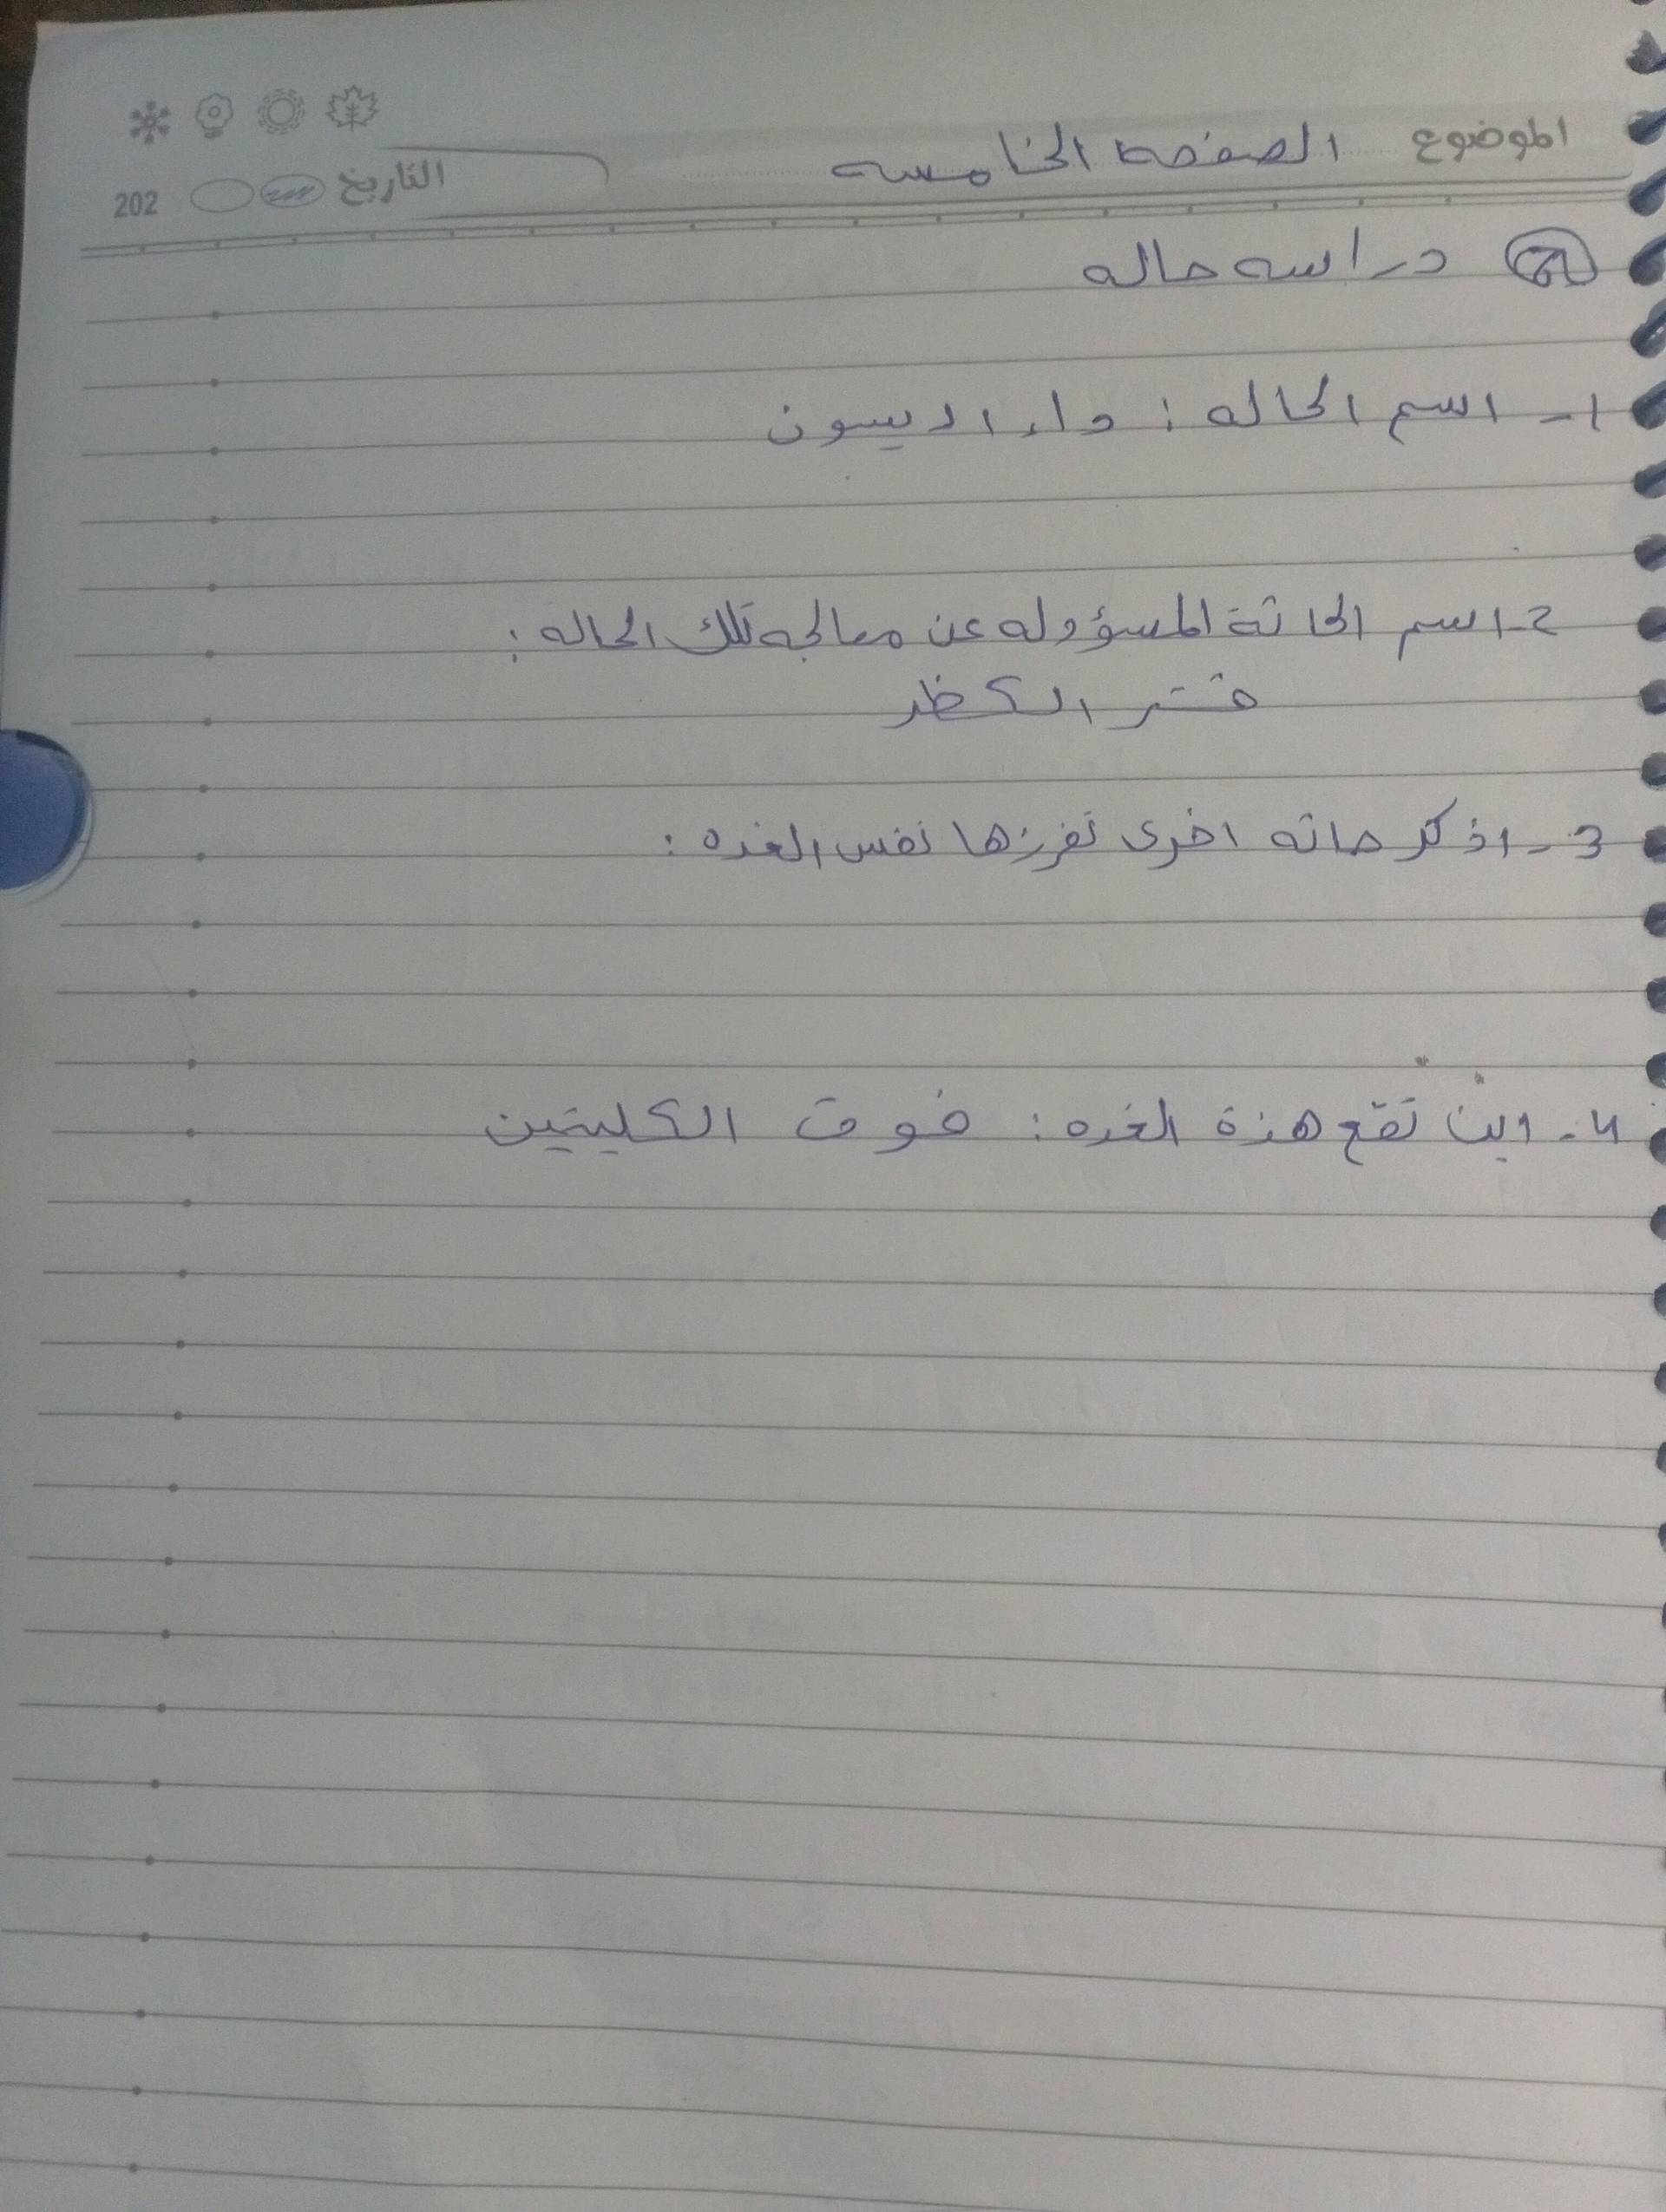 الموضوع الصفحه الخامسه
التاريخ 202
دراسه حاله
1- اسم الحاله : داء اديسون
2- اسم الحاثة المسؤوله عن معالجه تلك الحاله :
قشر الكظر
3- اذكر حاثه اخرى تفرزها نفس الغده :
4- اين تقع هذة الغده : فوق الكليتين